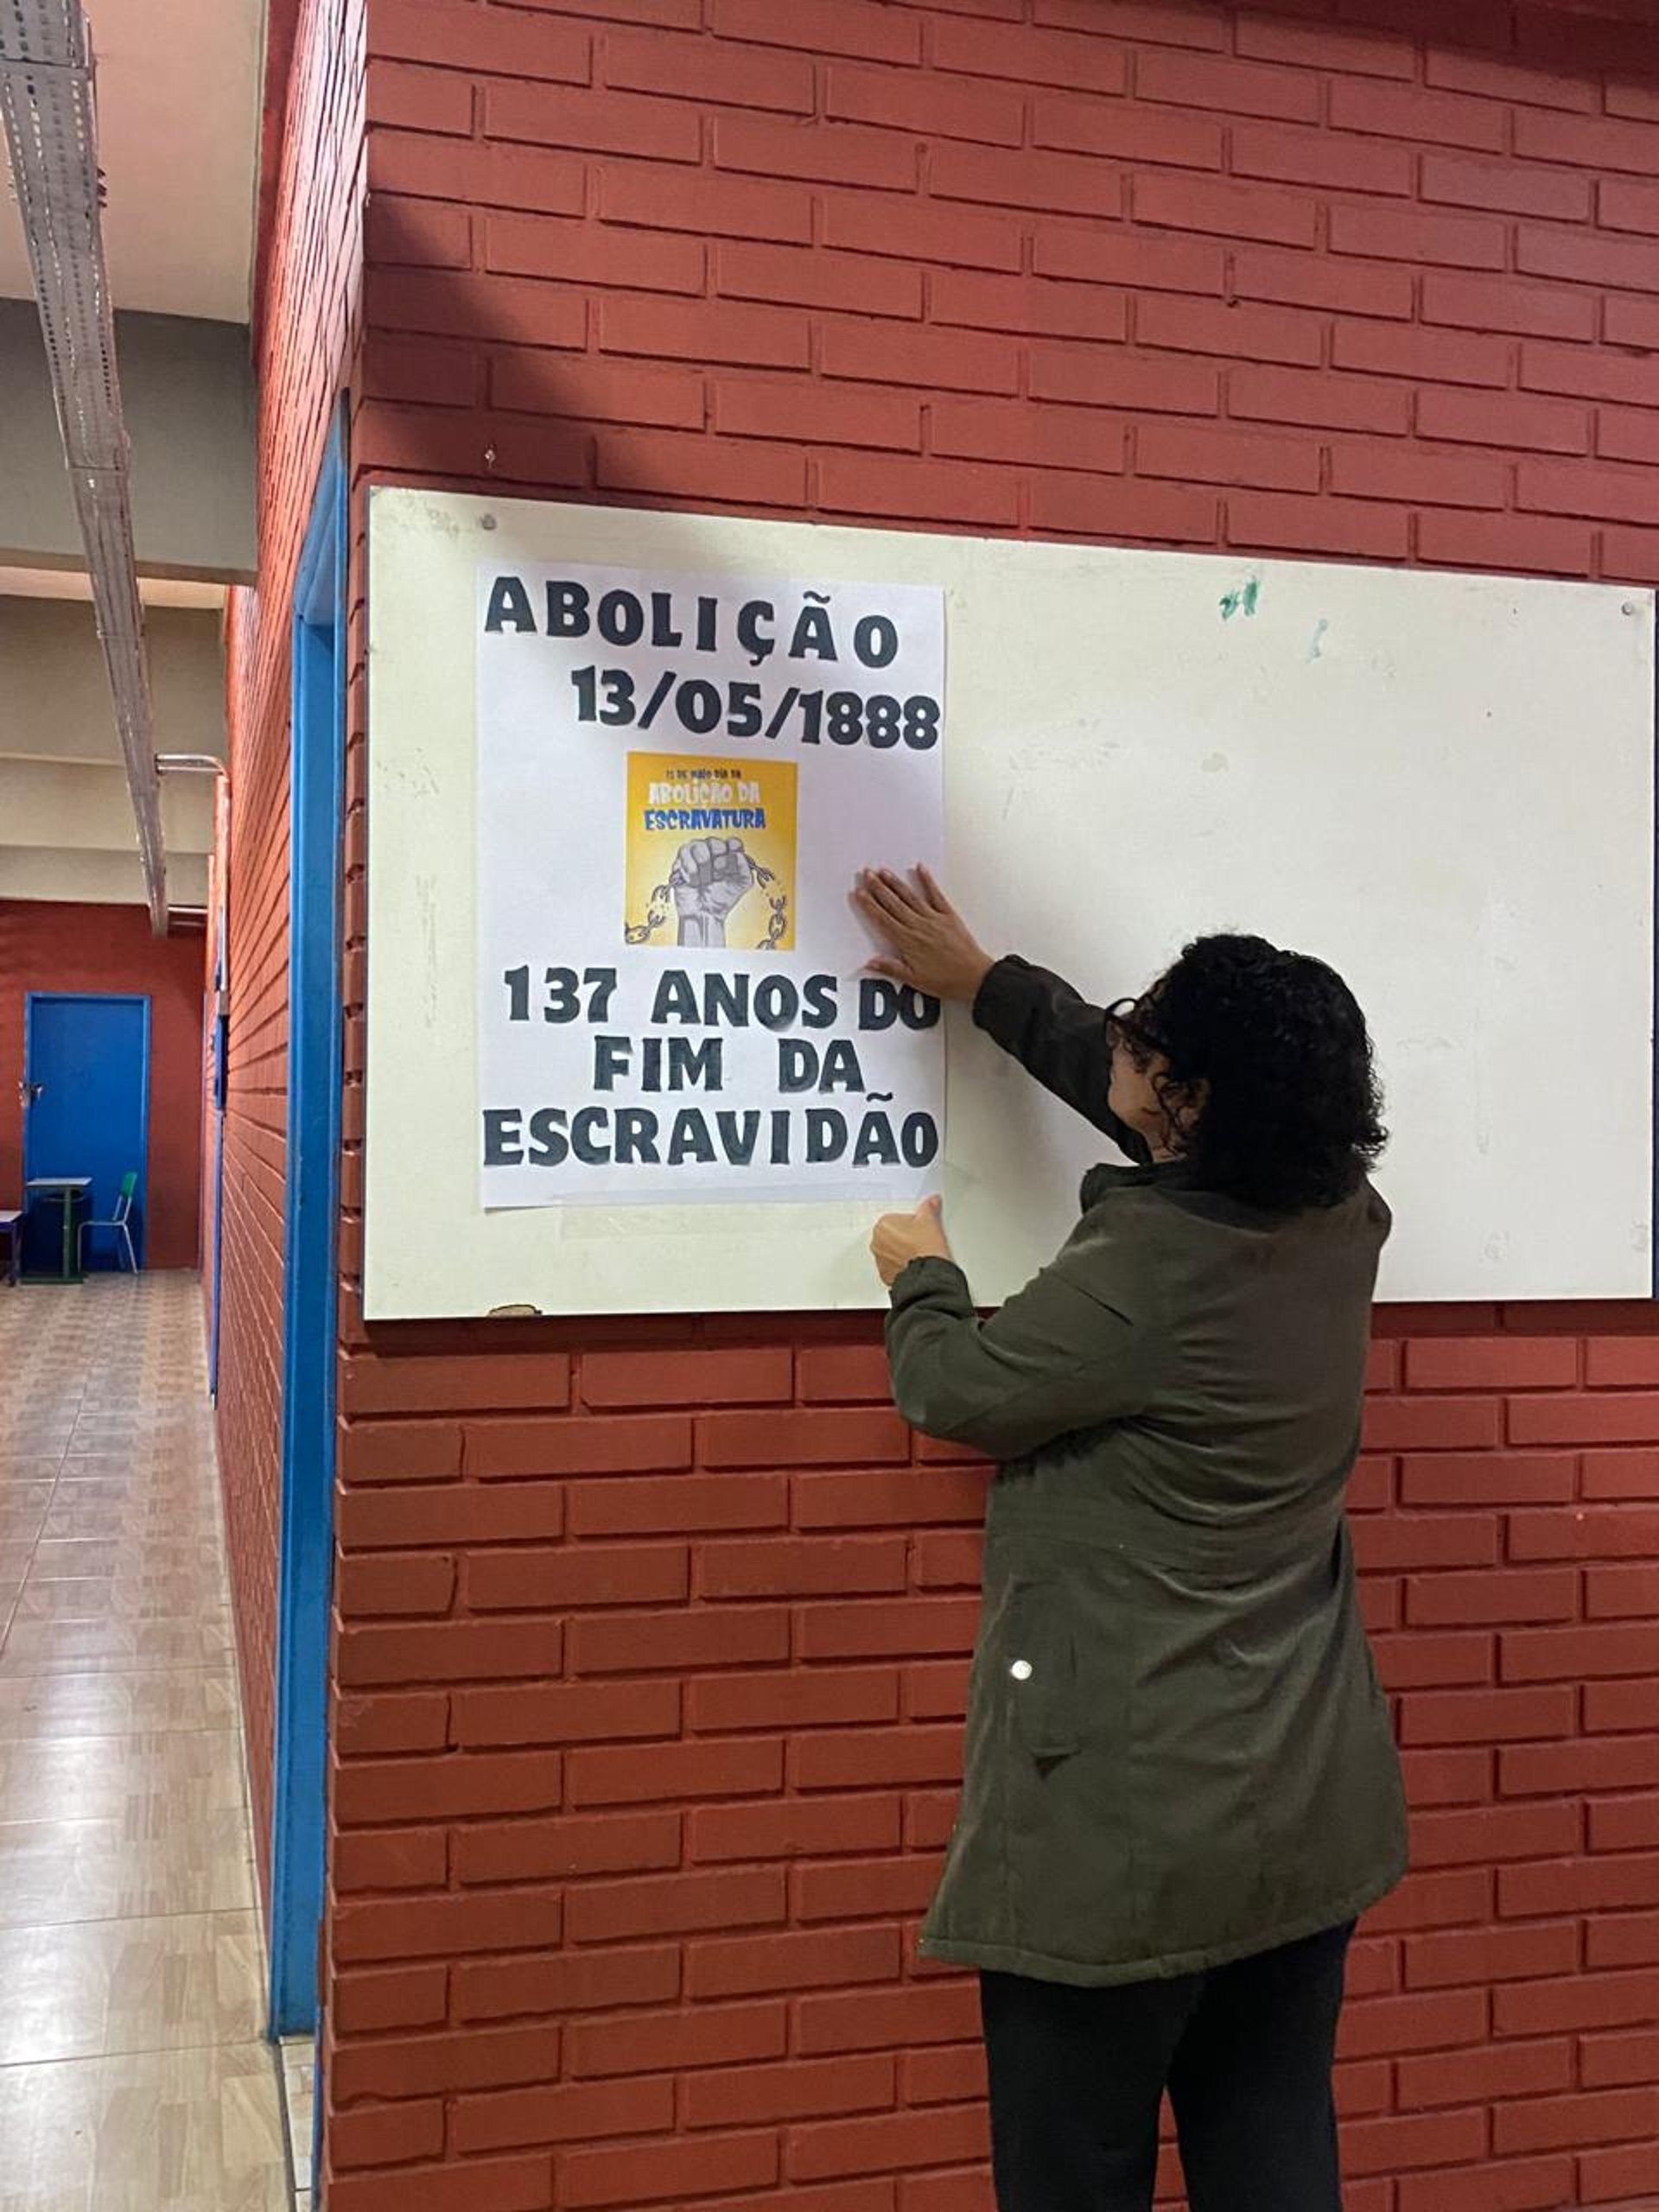 ABOLIÇÃO
13/05/1888
13 DE MAIO DIA DA
ABOLIÇÃO DA
ESCRAVATURA
137 ANOS DO
FIM DA
ESCRAVIDÃO